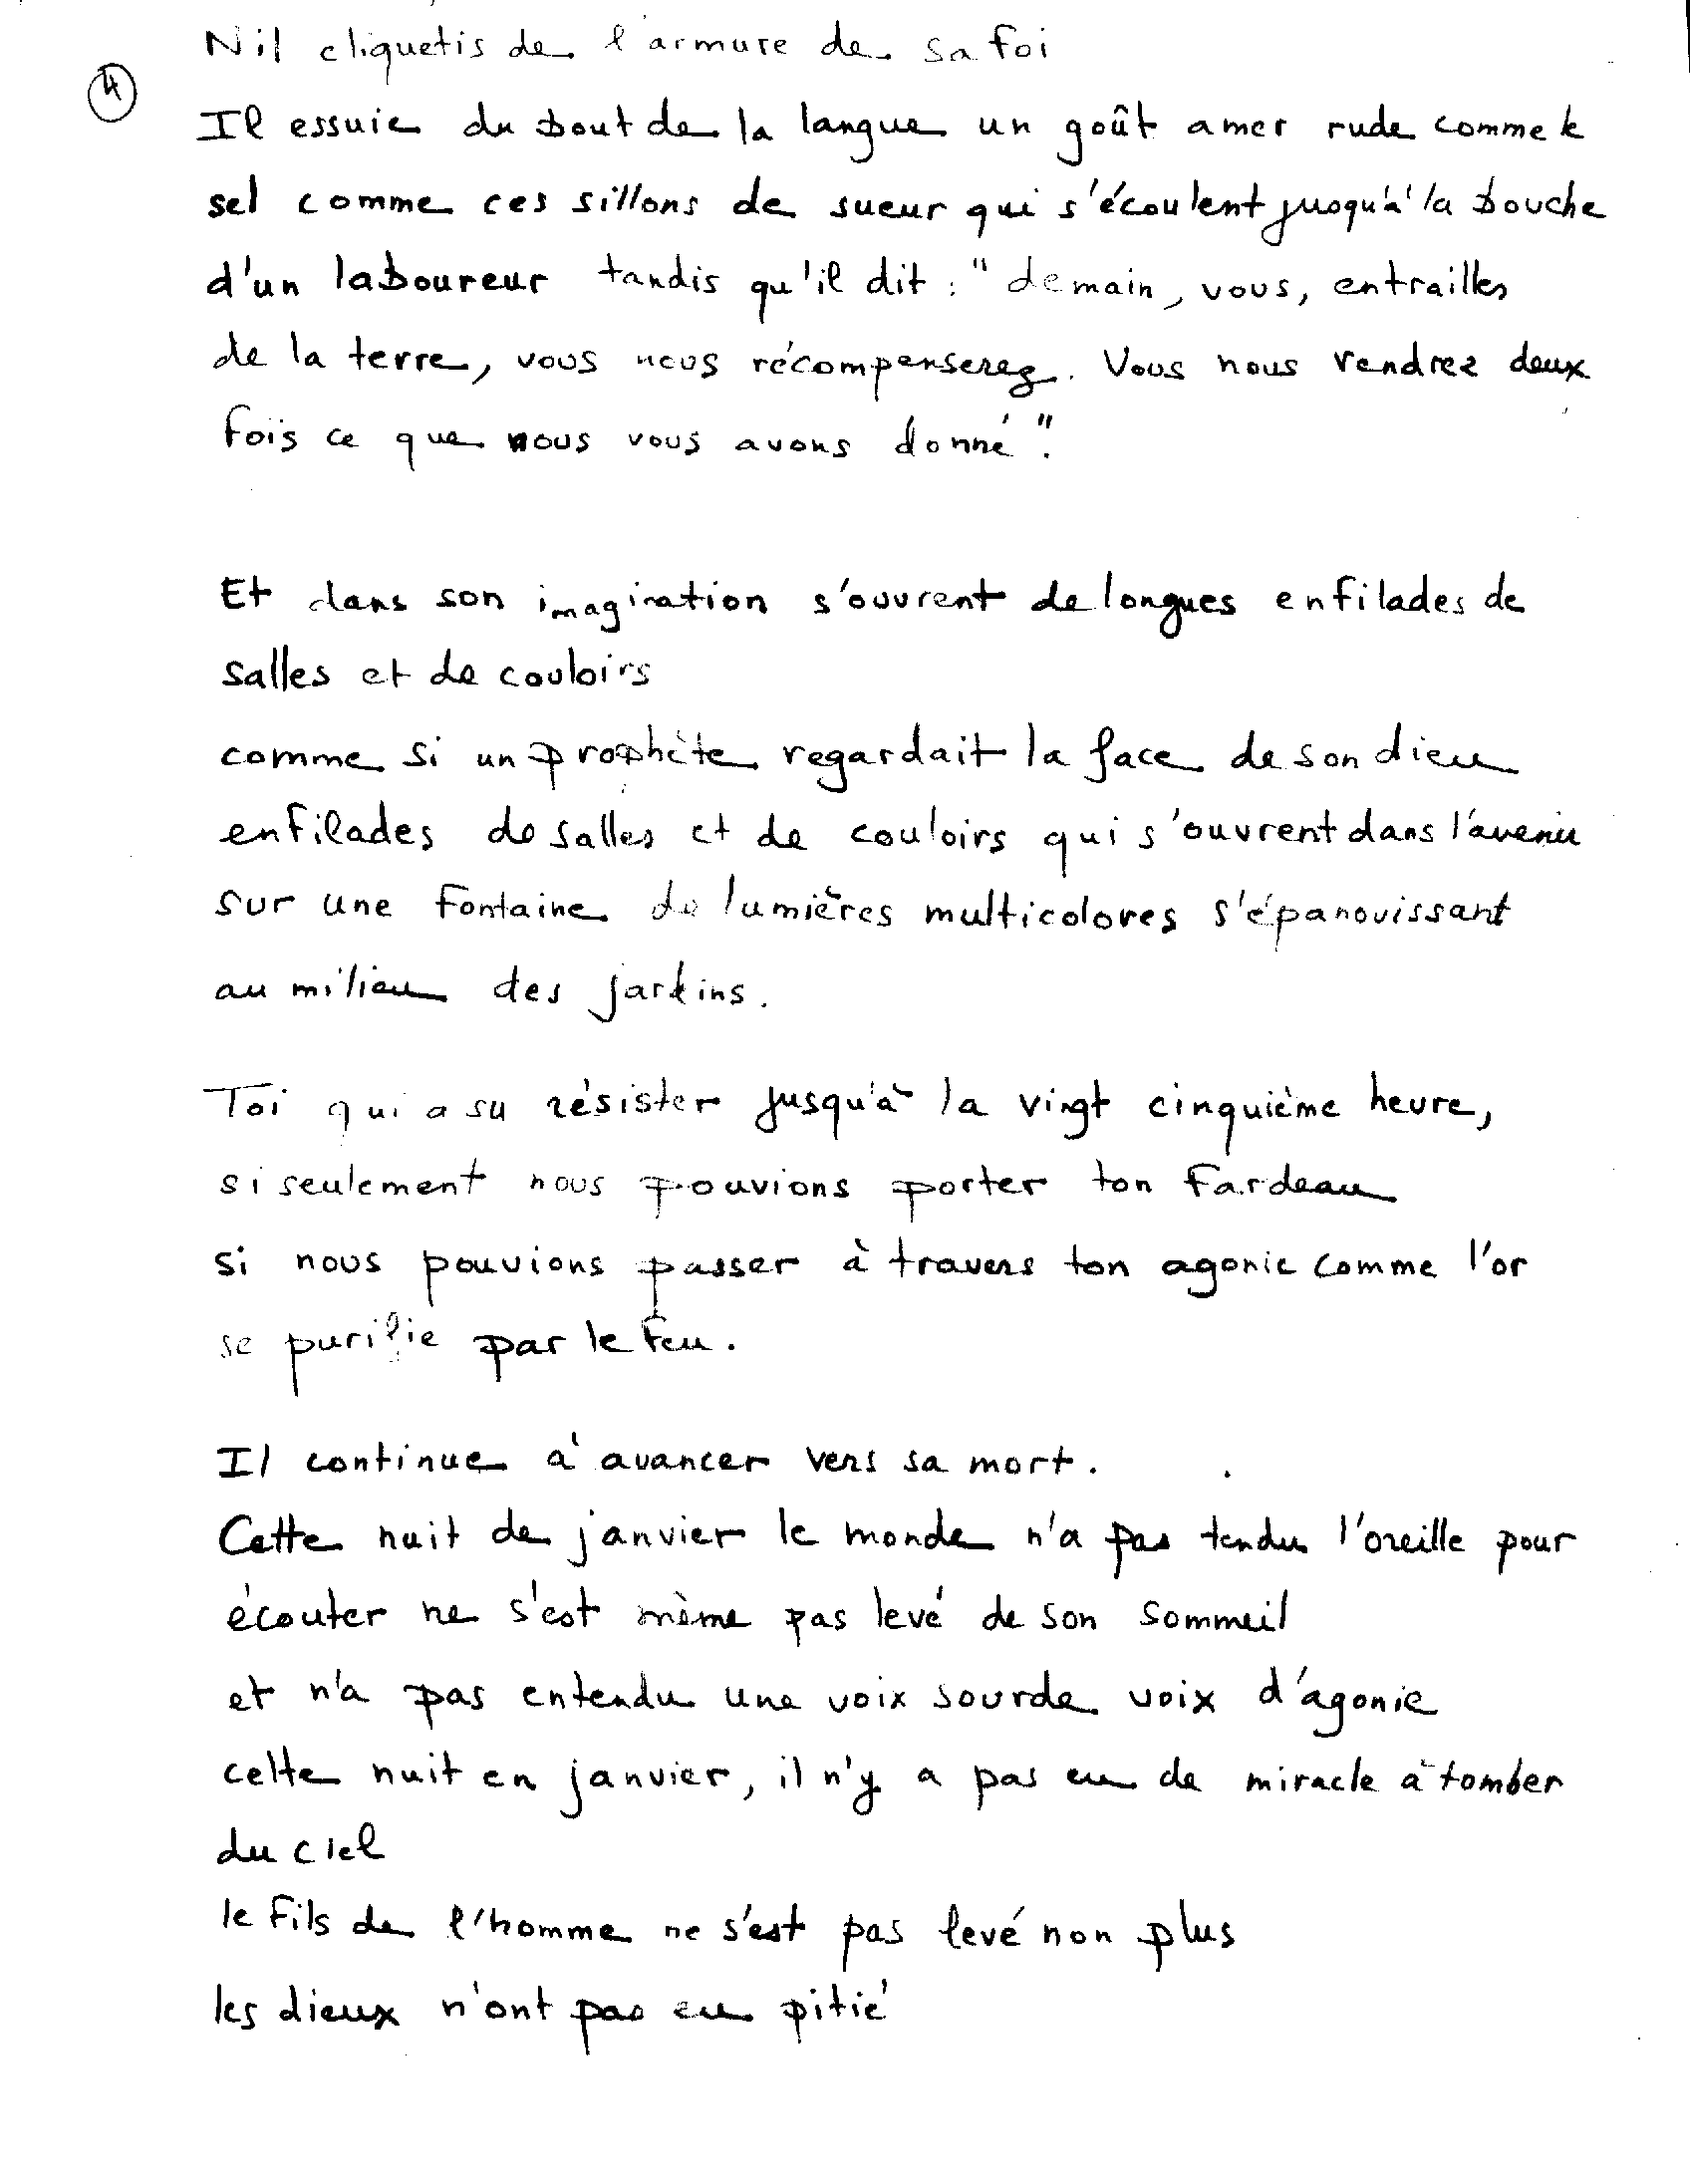 Nil cliquetis de l'armure de sa foi
4
Il essuie du bout de la langue un goût amer rude comme le
sel comme ces sillons de sueur qui s'écoulent jusqu'à la bouche
d'un laboureur tandis qu'il dit : "demain, vous, entrailles
de la terre, vous nous récompenserez. Vous nous rendrez deux
fois ce que nous vous avons donné".
Et dans son imagination s'ouvrent de longues enfilades de
salles et de couloirs
comme si un prophète regardait la face de son dieu
enfilades de salles et de couloirs qui s'ouvrent dans l'avenir
sur une fontaine de lumières multicolores s'épanouissant
au milieu des jardins.
Toi qui a su résister jusqu'à la vingt cinquième heure,
si seulement nous pouvions porter ton fardeau
si nous pouvions passer à travers ton agonie comme l'or
se purifie par le feu.
Il continue à avancer vers sa mort.
Cette nuit de janvier le monde n'a pas tendu l'oreille pour
écouter ne s'est même pas levé de son sommeil
et n'a pas entendu une voix sourde voix d'agonie
cette nuit en janvier, il n'y a pas eu de miracle à tomber
du ciel
le fils de l'homme ne s'est pas levé non plus
les dieux n'ont pas eu pitié